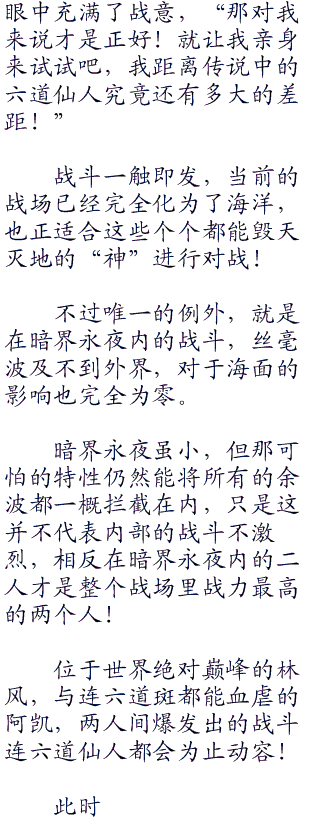 眼中充满了战意，“那对我
来说才是正好！就让我亲身
来试试吧，我距离传说中的
六道仙人究竟还有多大的差
距！”
战斗一触即发，当前的
战场已经完全化为了海洋，
也正适合这些个个都能毁天
灭地的“神”进行对战！
不过唯一的例外，就是
在暗界永夜内的战斗，丝毫
波及不到外界，对于海面的
影响也完全为零。
暗界永夜虽小，但那可
怕的特性仍然能将所有的余
波都一概拦截在内，只是这
并不代表内部的战斗不激
烈，相反在暗界永夜内的二
人才是整个战场里战力最高
的两个人！
位于世界绝对巅峰的林
风，与连六道斑都能血虐的
阿凯，两人间爆发出的战斗
连六道仙人都会为止动容！
此时